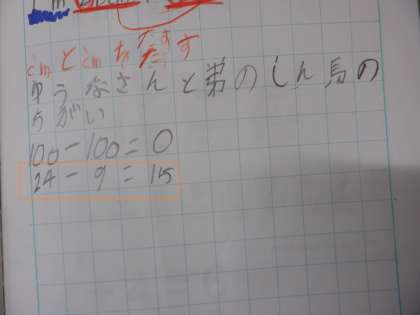 cmとcmをたす
ゆうなさんと弟のしん馬の
ちがい
100-100=0
24-9=15